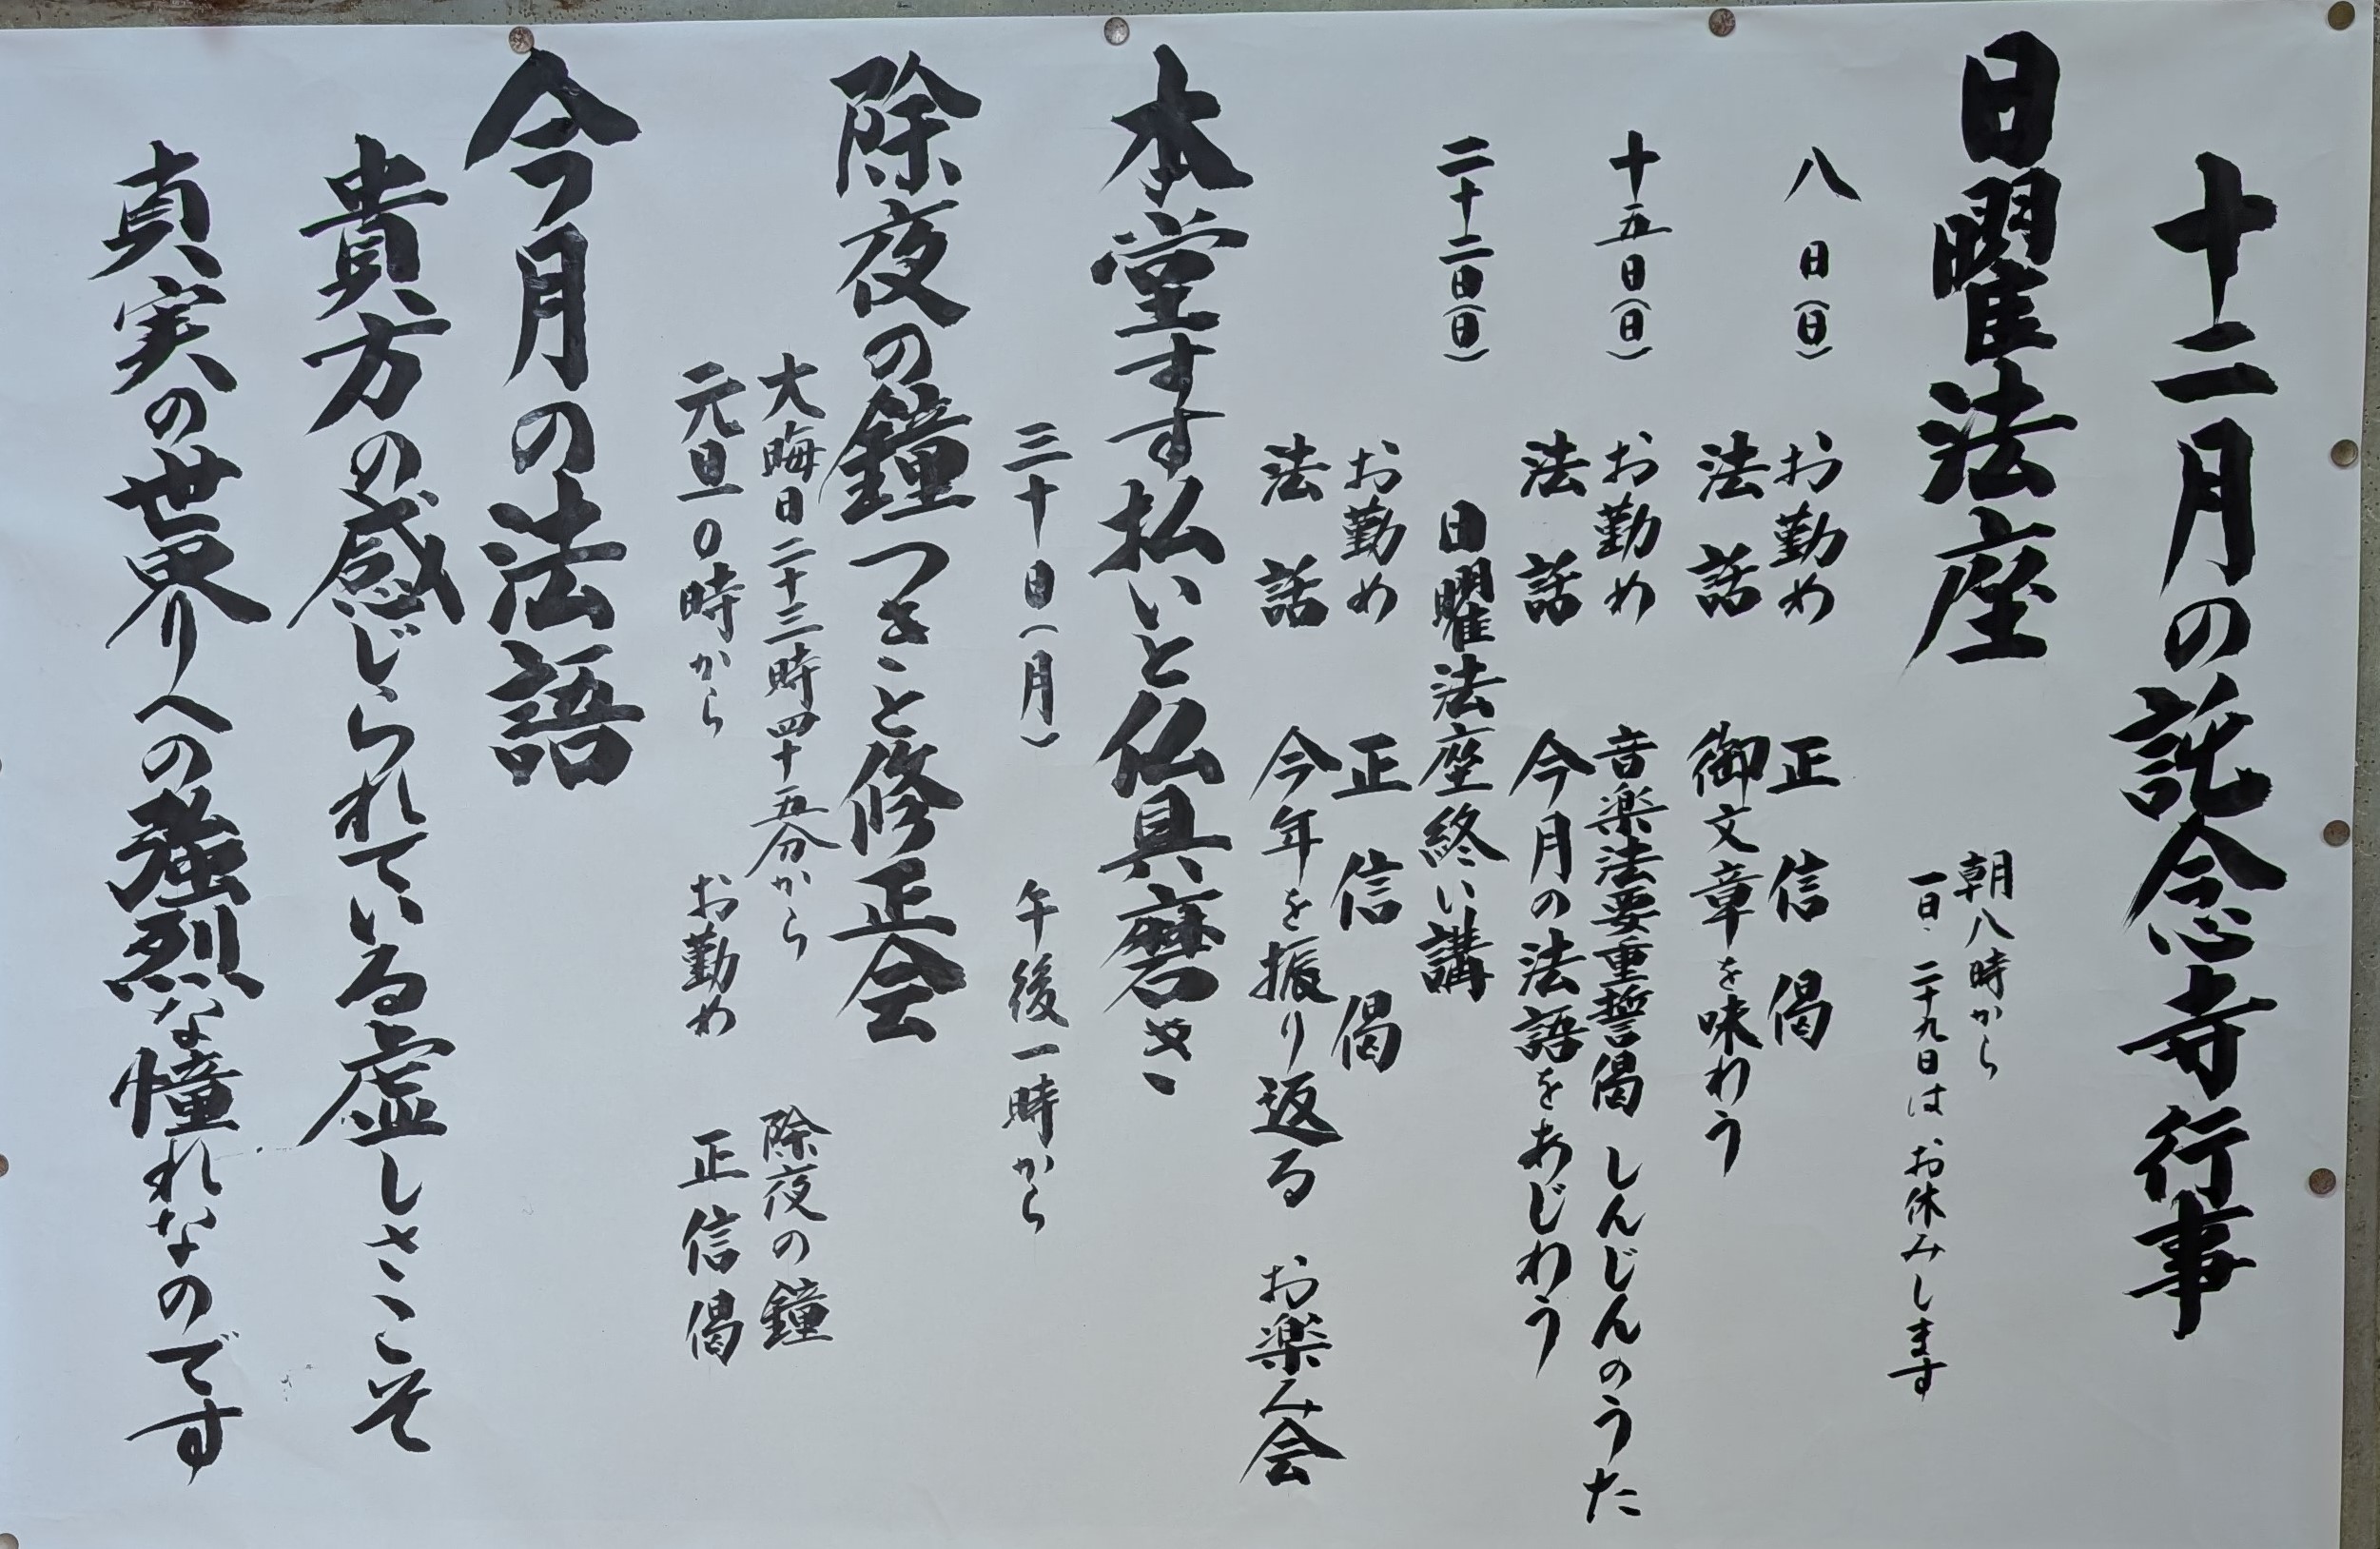 十二月の託念寺行事
日曜法座
朝八時から
一日、二十九日は お休みします
八日(日)
お勤め 正信偈
法話 御文章を味わう
十五日(日)
お勤め 音楽法要重誓偈 しんじんのうた
法話 今月の法語をあじわう
二十二日(日)
日曜法座終い講
お勤め 正信偈
法話 今年を振り返る お楽み会
本堂すす払いと仏具磨き
三十日(月) 午後一時から
除夜の鐘つきと修正会
大晦日二十三時四十五分から 除夜の鐘
元旦0時から お勤め 正信偈
今月の法語
貴方の感じられている虚しさこそ
真実の世界への強烈な憧れなのです